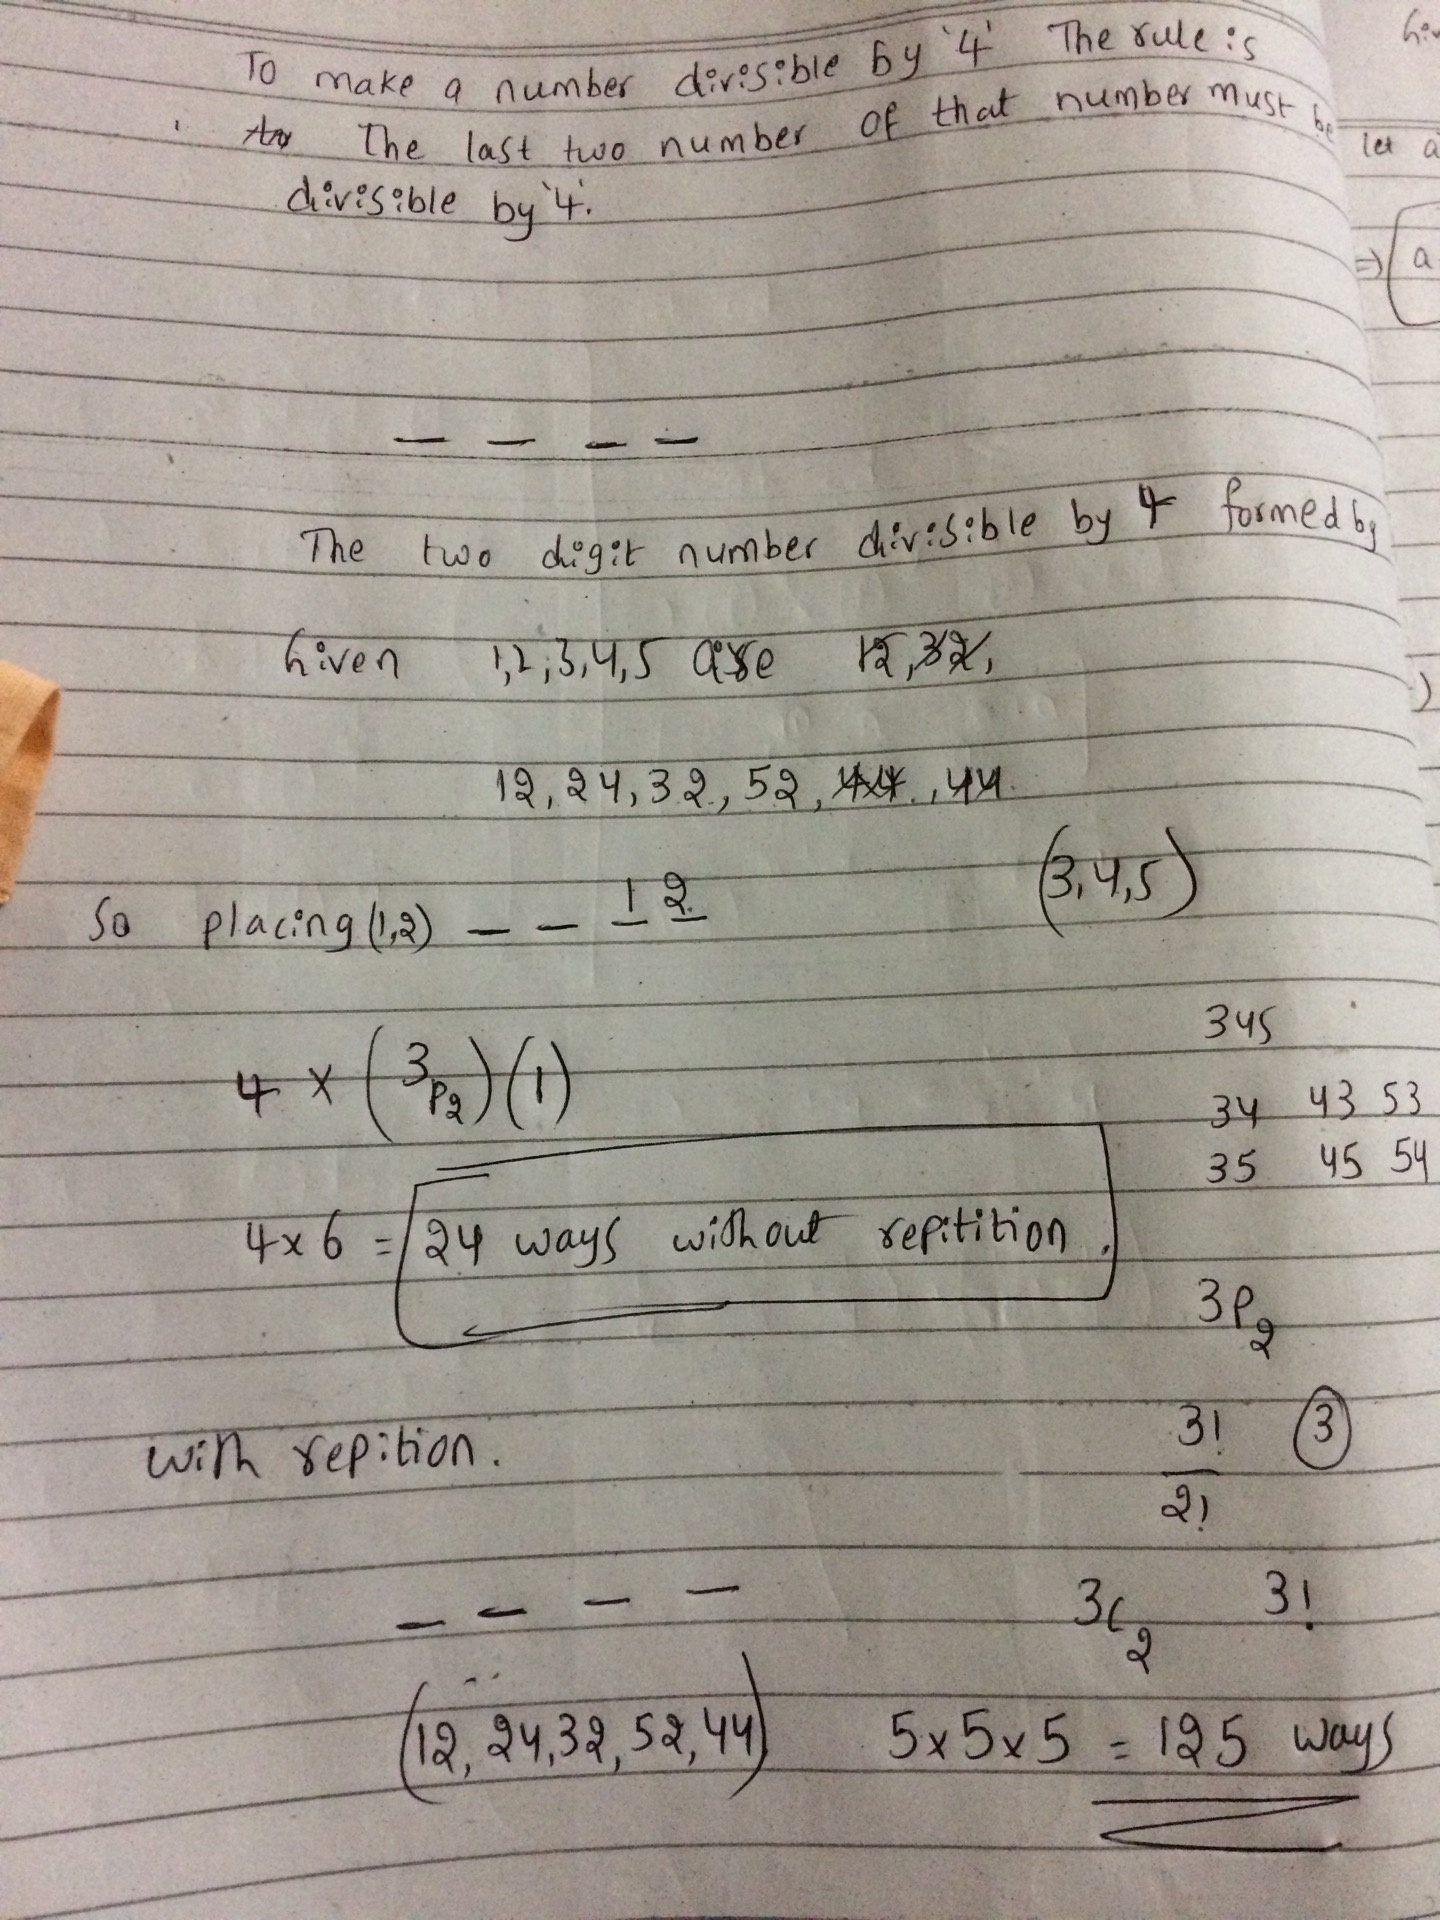 To make a number divisible by '4' The rule is
The last two number of that number must be
divisible by '4'.
The two digit number divisible by 4 formed by
Given 1,2,3,4,5 are 12, 32,
12, 24, 32, 52, 44, 44.
So placing (1,2) _ _ 1 2 (3,4,5)
345
4 × (3P2)(1)
34 43 53
35 45 54
4×6 = 24 ways without repitition.
3P2
3! 3
with repition.
2!
3C2 3!
(12, 24, 32, 52, 44) 5×5×5 = 125 ways
let a
⇒ a
)